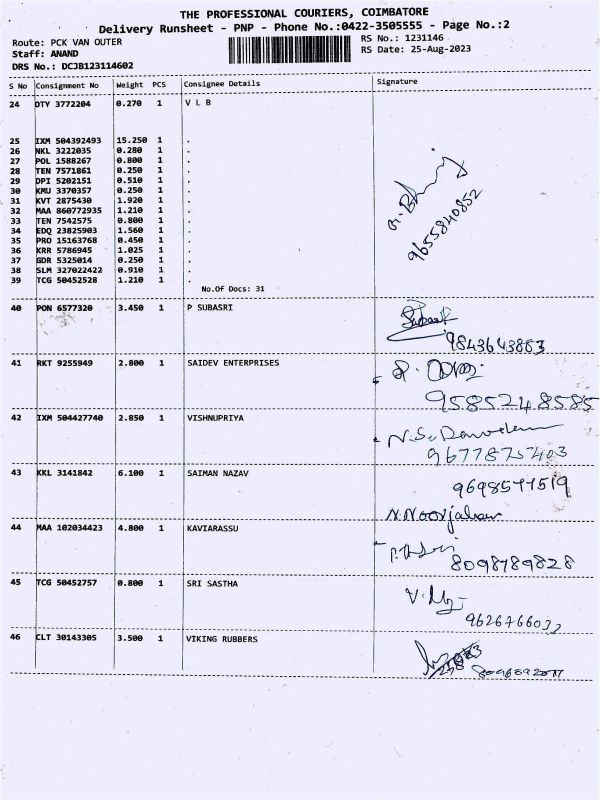 THE PROFESSIONAL COURIERS, COIMBATORE
Delivery Runsheet - PNP - Phone No.:0422-3505555 - Page No.:2
Route: PCK VAN OUTER
RS No.: 1231146
Staff: ANAND
RS Date: 25-Aug-2023
DRS No.: DCJB123114602
S No Consignment No Weight PCS Consignee Details Signature
24 OTY 3772204 0.270 1 V L B
25 IXM 504392493 15.250 1 .
26 NKL 3222035 0.280 1 .
27 POL 1588267 0.800 1 .
28 TEN 7571861 0.250 1 .
29 DPI 5202151 0.510 1 .
30 KMU 3370357 0.250 1 .
31 KVT 2875430 1.920 1 .
32 MAA 860772935 1.210 1 .
33 TEN 7542575 0.800 1 .
34 EDQ 23825903 1.560 1 .
35 PRO 15163768 0.450 1 .
36 KRR 5786945 1.025 1 .
37 GDR 5325014 0.250 1 .
38 SLM 327022422 0.910 1 .
39 TCG 50452528 1.210 1 .
9655840852
No.Of Docs: 31
40 PON 6577320 3.450 1 P SUBASRI
9843643883
41 RKT 9255949 2.800 1 SAIDEV ENTERPRISES
9585248585
42 IXM 504427740 2.850 1 VISHNUPRIYA
43 KKL 3141842 6.100 1 SAIMAN NAZAV
N.Noorjahan
44 MAA 102034423 4.800 1 KAVIARASSU
8098789828
45 TCG 50452757 0.800 1 SRI SASTHA
46 CLT 30143305 3.500 1 VIKING RUBBERS